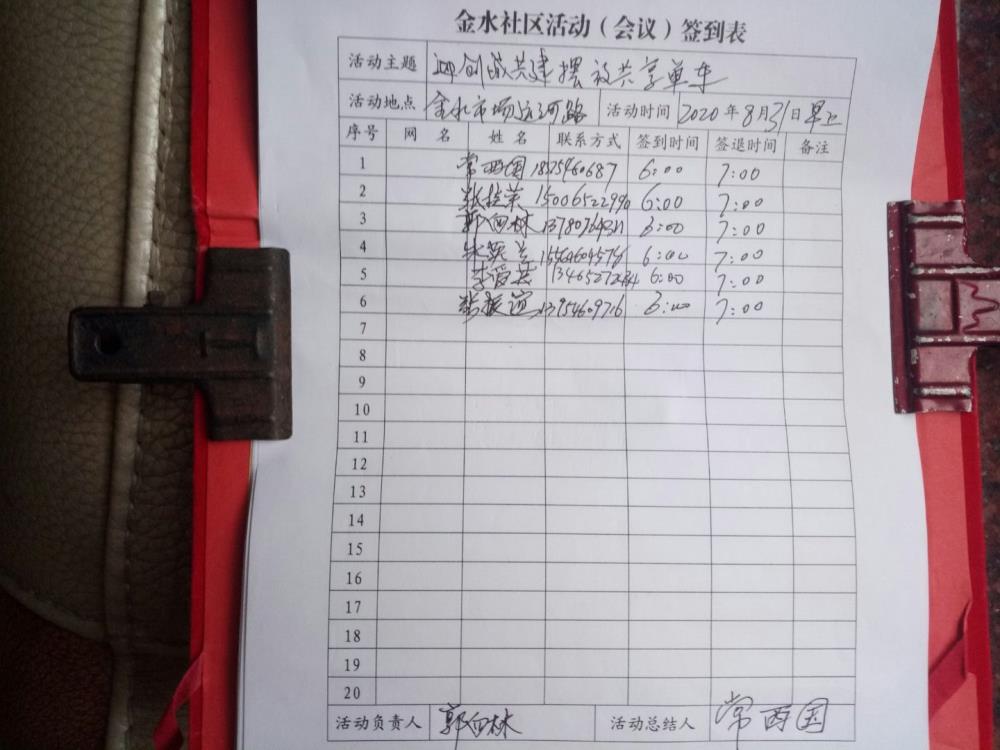 金水社区活动（会议）签到表
活动主题 迎创城共建摆放共享单车
活动地点 金水市场运河路 活动时间 2020年8月31日早上
序号 网名 姓名 联系方式 签到时间 签退时间 备注
1 常西国 6:00 7:00
2 15006522990 6:00 7:00
3 郭向林 6:00 7:00
4 6:00 7:00
5 李爱英 6:00 7:00
6 张振谊 6:00 7:00
7
8
9
10
11
12
13
14
15
16
17
18
19
20
活动负责人 郭向林 活动总结人 常西国